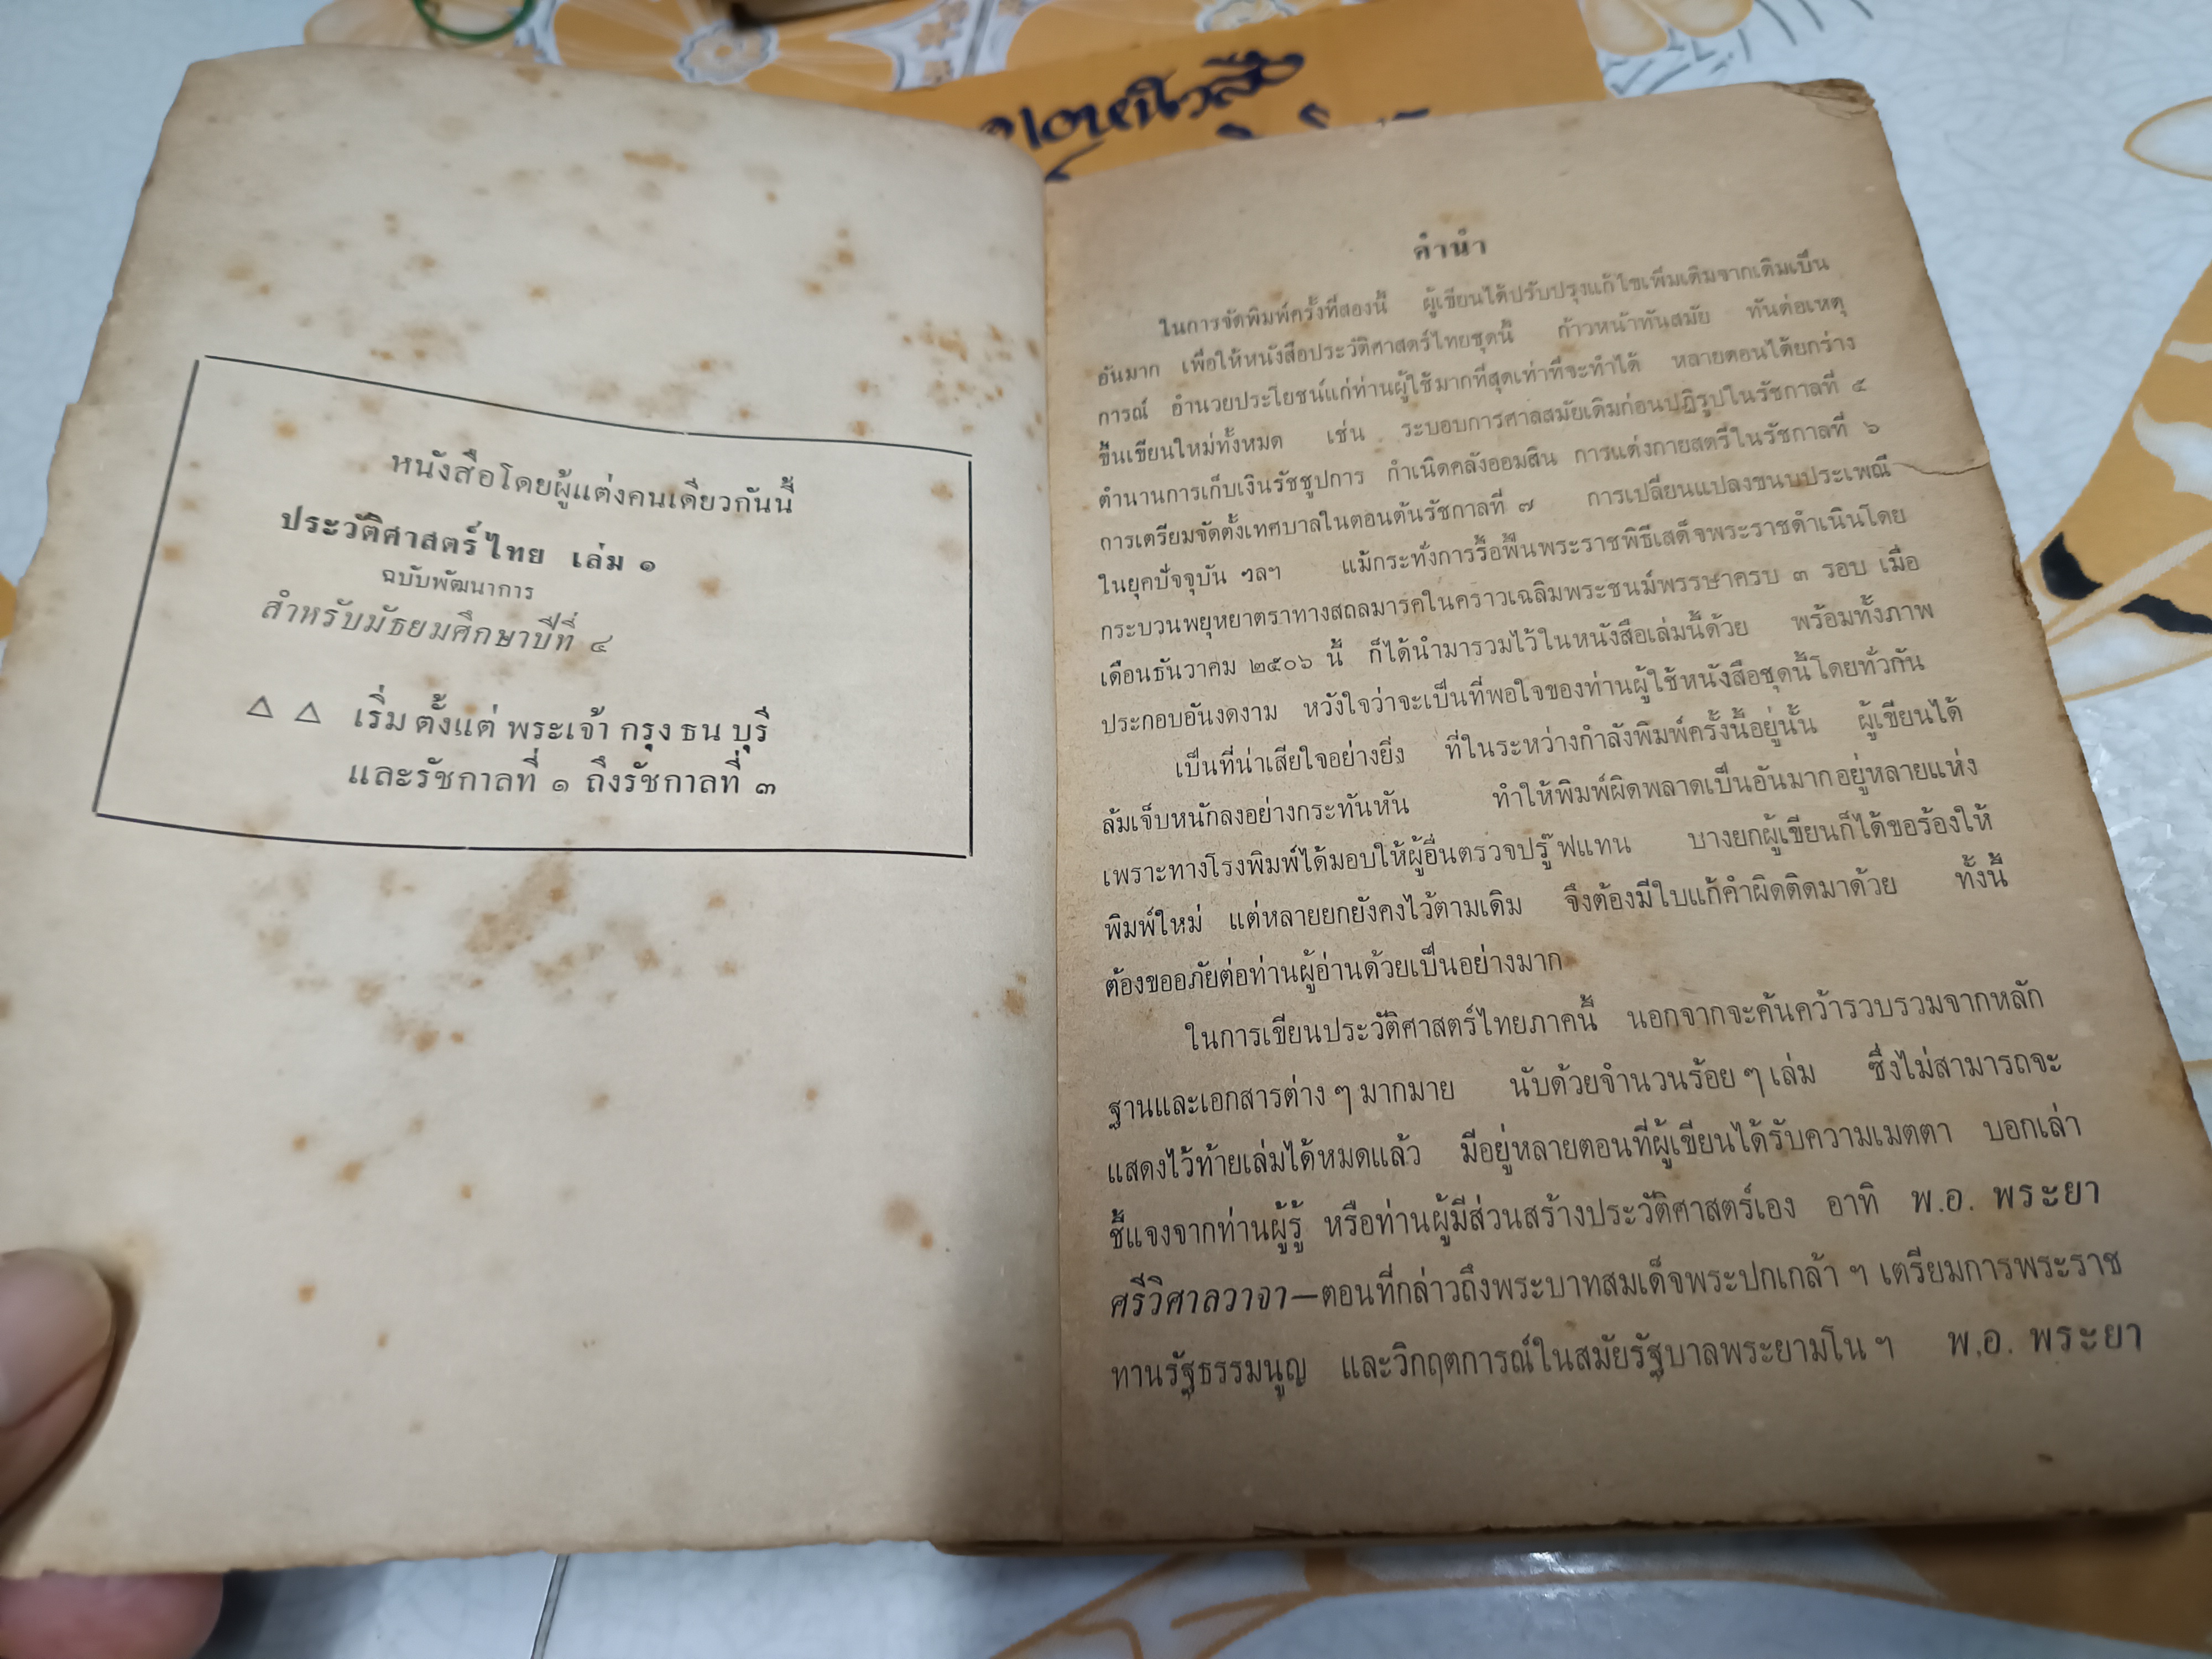 หนังสือโดยผู้แต่งคนเดียวกันนี้
ประวัติศาสตร์ไทย เล่ม ๑
ฉบับพัฒนาการ
สำหรับมัธยมศึกษาปีที่ ๔
△ △ เริ่มตั้งแต่พระเจ้ากรุงธนบุรี
และรัชกาลที่ ๑ ถึงรัชกาลที่ ๓
คำนำ
ในการจัดพิมพ์ครั้งที่สองนี้ ผู้เขียนได้ปรับปรุงแก้ไขเพิ่มเติมจากเดิมเป็น
อันมาก เพื่อให้หนังสือประวัติศาสตร์ไทยชุดนี้ ก้าวหน้าทันสมัย ทันต่อเหตุ
การณ์ อำนวยประโยชน์แก่ท่านผู้ใช้มากที่สุดเท่าที่จะทำได้ หลายตอนได้ยกร่าง
ขึ้นเขียนใหม่ทั้งหมด เช่น ระบอบการศาลสมัยเดิมก่อนปฏิรูปในรัชกาลที่ ๕
ตำนานการเก็บเงินรัชชูปการ กำเนิดคลังออมสิน การแต่งกายสตรีในรัชกาลที่ ๖
การเตรียมจัดตั้งเทศบาลในตอนต้นรัชกาลที่ ๗ การเปลี่ยนแปลงขนบประเพณี
ในยุคปัจจุบัน ฯลฯ แม้กระทั่งการรื้อฟื้นพระราชพิธีเสด็จพระราชดำเนินโดย
กระบวนพยุหยาตราทางสถลมารคในคราวเฉลิมพระชนม์พรรษาครบ ๓ รอบ เมื่อ
เดือนธันวาคม ๒๕๐๖ นี้ ก็ได้นำมารวมไว้ในหนังสือเล่มนี้ด้วย พร้อมทั้งภาพ
ประกอบอันงดงาม หวังใจว่าจะเป็นที่พอใจของท่านผู้ใช้หนังสือชุดนี้โดยทั่วกัน
เป็นที่น่าเสียใจอย่างยิ่ง ที่ในระหว่างกำลังพิมพ์ครั้งนี้อยู่นั้น ผู้เขียนได้
ล้มเจ็บหนักลงอย่างกระทันหัน ทำให้พิมพ์ผิดพลาดเป็นอันมากอยู่หลายแห่ง
เพราะทางโรงพิมพ์ได้มอบให้ผู้อื่นตรวจปรู๊ฟแทน บางยกผู้เขียนก็ได้ขอร้องให้
พิมพ์ใหม่ แต่หลายยกยังคงไว้ตามเดิม จึงต้องมีใบแก้คำผิดติดมาด้วย ทั้งนี้
ต้องขออภัยต่อท่านผู้อ่านด้วยเป็นอย่างมาก
ในการเขียนประวัติศาสตร์ไทยภาคนี้ นอกจากจะค้นคว้ารวบรวมจากหลัก
ฐานและเอกสารต่าง ๆ มากมาย นับด้วยจำนวนร้อย ๆ เล่ม ซึ่งไม่สามารถจะ
แสดงไว้ท้ายเล่มได้หมดแล้ว มีอยู่หลายตอนที่ผู้เขียนได้รับความเมตตา บอกเล่า
ชี้แจงจากท่านผู้รู้ หรือท่านผู้มีส่วนสร้างประวัติศาสตร์เอง อาทิ พ.อ. พระยา
ศรีวิศาลวาจา—ตอนที่กล่าวถึงพระบาทสมเด็จพระปกเกล้า ฯ เตรียมการพระราช
ทานรัฐธรรมนูญ และวิกฤตการณ์ในสมัยรัฐบาลพระยามโน ฯ พ.อ. พระยา